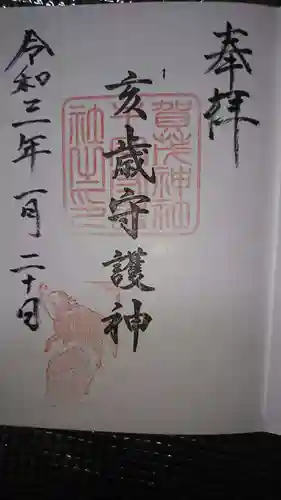 奉拝
亥歳守護神
賀茂神社
令和二年一月二十日